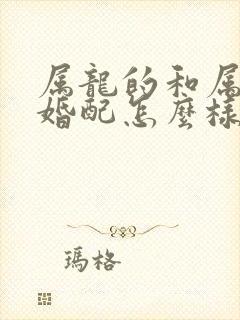 属龍的和属
婚配怎麼樣
瑪格